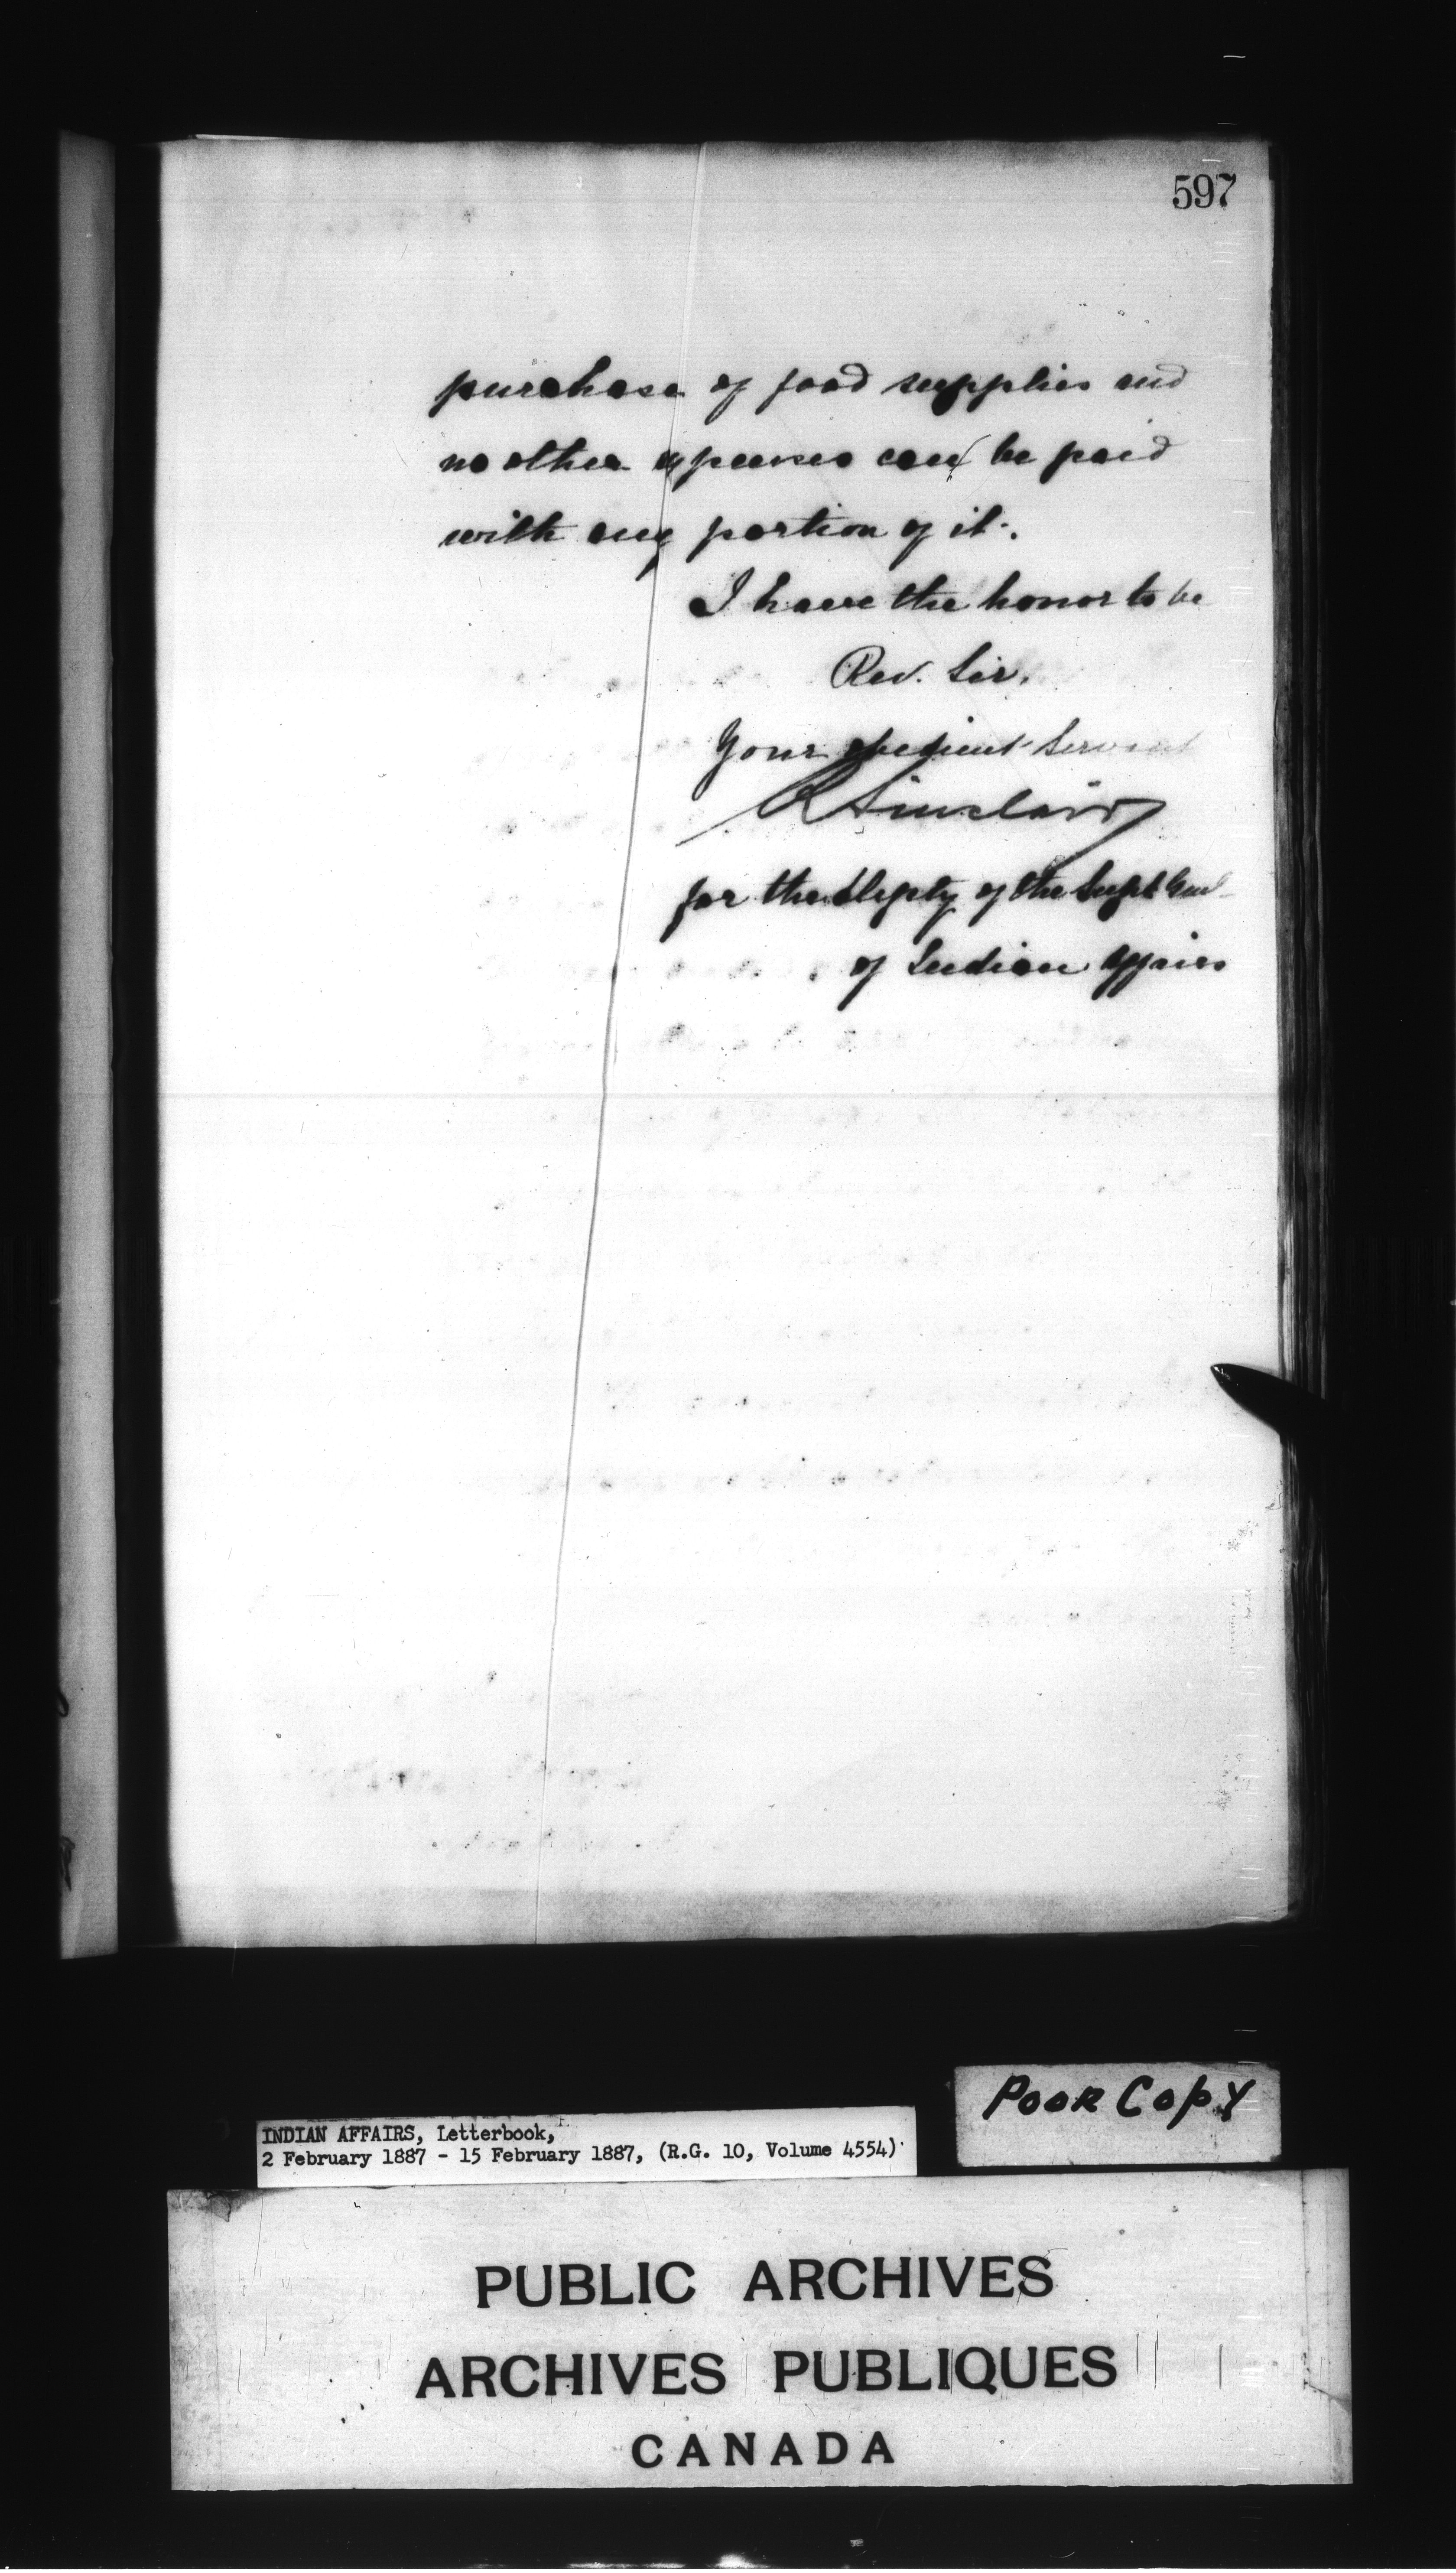 597
purchase of food supplies and
no other expenses can be paid
with any portion of it.
I have the honor to be
Rev. Sir,
Your obedient Servant
R Sinclair
for the Depty of the Supt Genl
of Indian Affairs
Poor Copy
INDIAN AFFAIRS, Letterbook,
2 February 1887 - 15 February 1887, (R.G. 10, Volume 4554)
PUBLIC ARCHIVES
ARCHIVES PUBLIQUES
CANADA